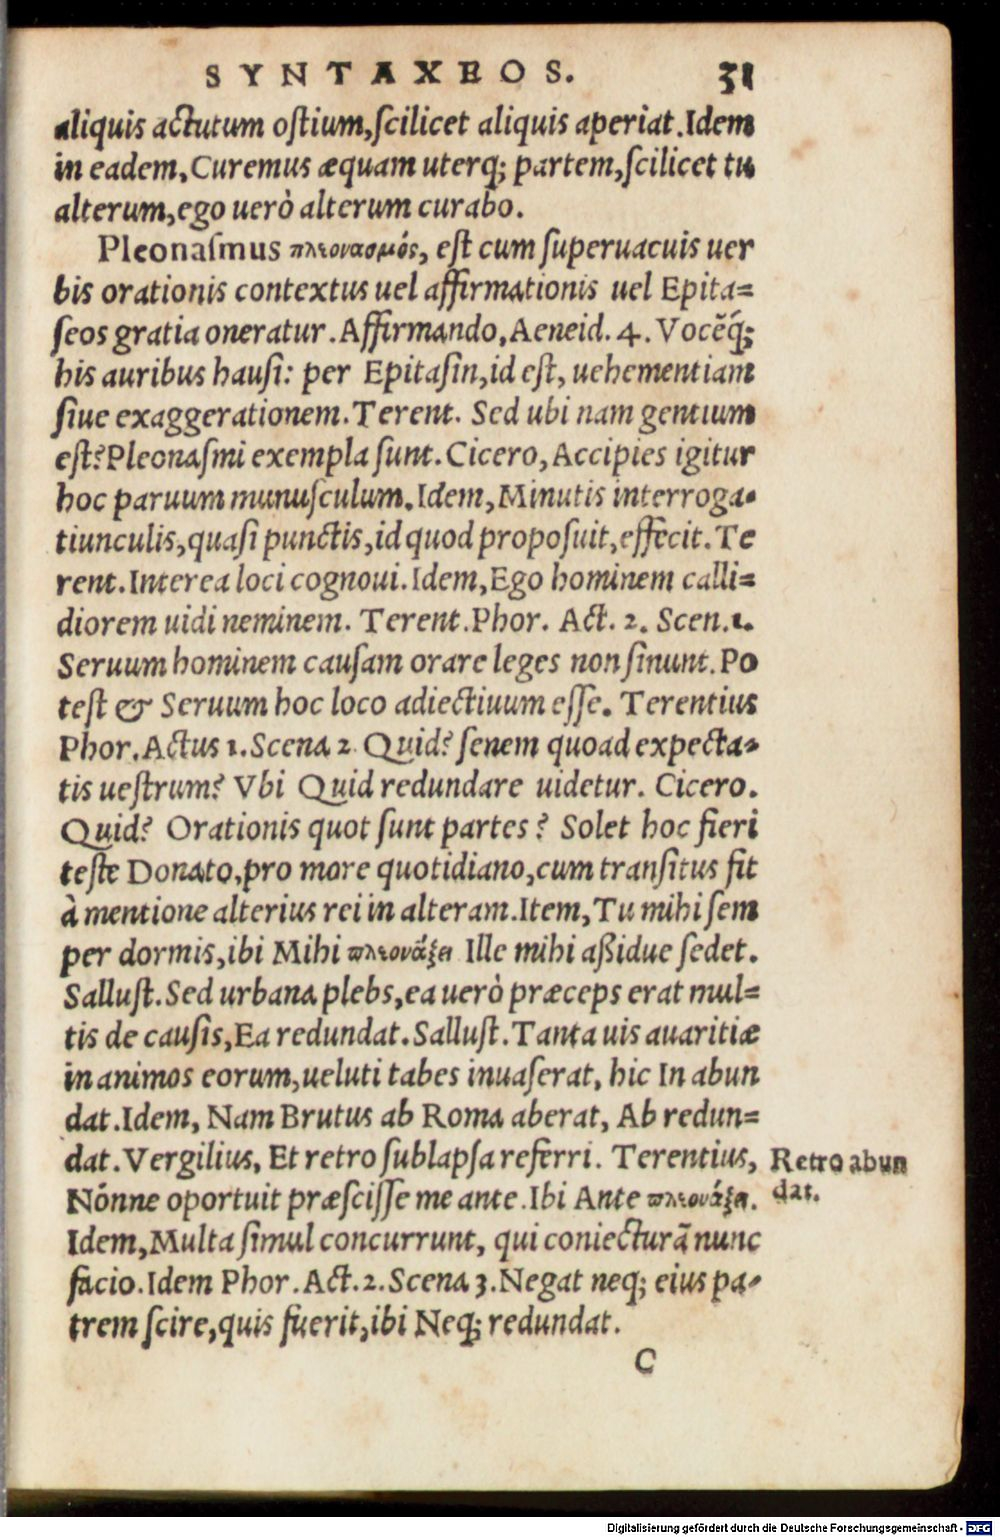 SYNTAXEOS. 31
aliquis actutum ostium, scilicet aliquis aperiat. Idem
in eadem, Curemus æquam uterq; partem, scilicet tu
alterum, ego uerò alterum curabo.
Pleonasmus πλεονασμός, est cum superuacuis uer
bis orationis contextus uel affirmationis uel Epita=
seos gratia oneratur. Affirmando, Aeneid. 4. Vocẽq́;
his auribus hausi: per Epitasin, id est, uehementiam
siue exaggerationem. Terent. Sed ubi nam gentium
est? Pleonasmi exempla sunt. Cicero, Accipies igitur
hoc paruum munusculum. Idem, Minutis interroga-
tiunculis, quasi punctis, id quod proposuit, effecit. Te
rent. Interea loci cognoui. Idem, Ego hominem calli=
diorem uidi neminem. Terent. Phor. Act. 2. Scen. 1.
Seruum hominem causam orare leges non sinunt. Po
test & Seruum hoc loco adiectiuum esse. Terentius
Phor. Actus 1. Scena 2 Quid? senem quoad expecta-
tis uestrum? Vbi Quid redundare uidetur. Cicero.
Quid? Orationis quot sunt partes? Solet hoc fieri
teste Donato, pro more quotidiano, cum transitus fit
à mentione alterius rei in alteram. Item, Tu mihi sem
per dormis, ibi Mihi πλεονάζει Ille mihi aßidue sedet.
Sallust. Sed urbana plebs, ea uerò præceps erat mul=
tis de causis, Ea redundat. Sallust. Tanta uis auaritiæ
in animos eorum, ueluti tabes inuaserat, hic In abun
dat. Idem, Nam Brutus ab Roma aberat, Ab redun=
dat. Vergilius, Et retro sublapsa referri. Terentius,
Retro abun
dat.
Nónne oportuit præscisse me ante. Ibi Ante πλεονάζει.
Idem, Multa simul concurrunt, qui coniecturã nunc
facio. Idem Phor. Act. 2. Scena 3. Negat neq; eius pa-
trem scire, quis fuerit, ibi Neq; redundat.
C
Digitalisierung gefördert durch die Deutsche Forschungsgemeinschaft - DFG